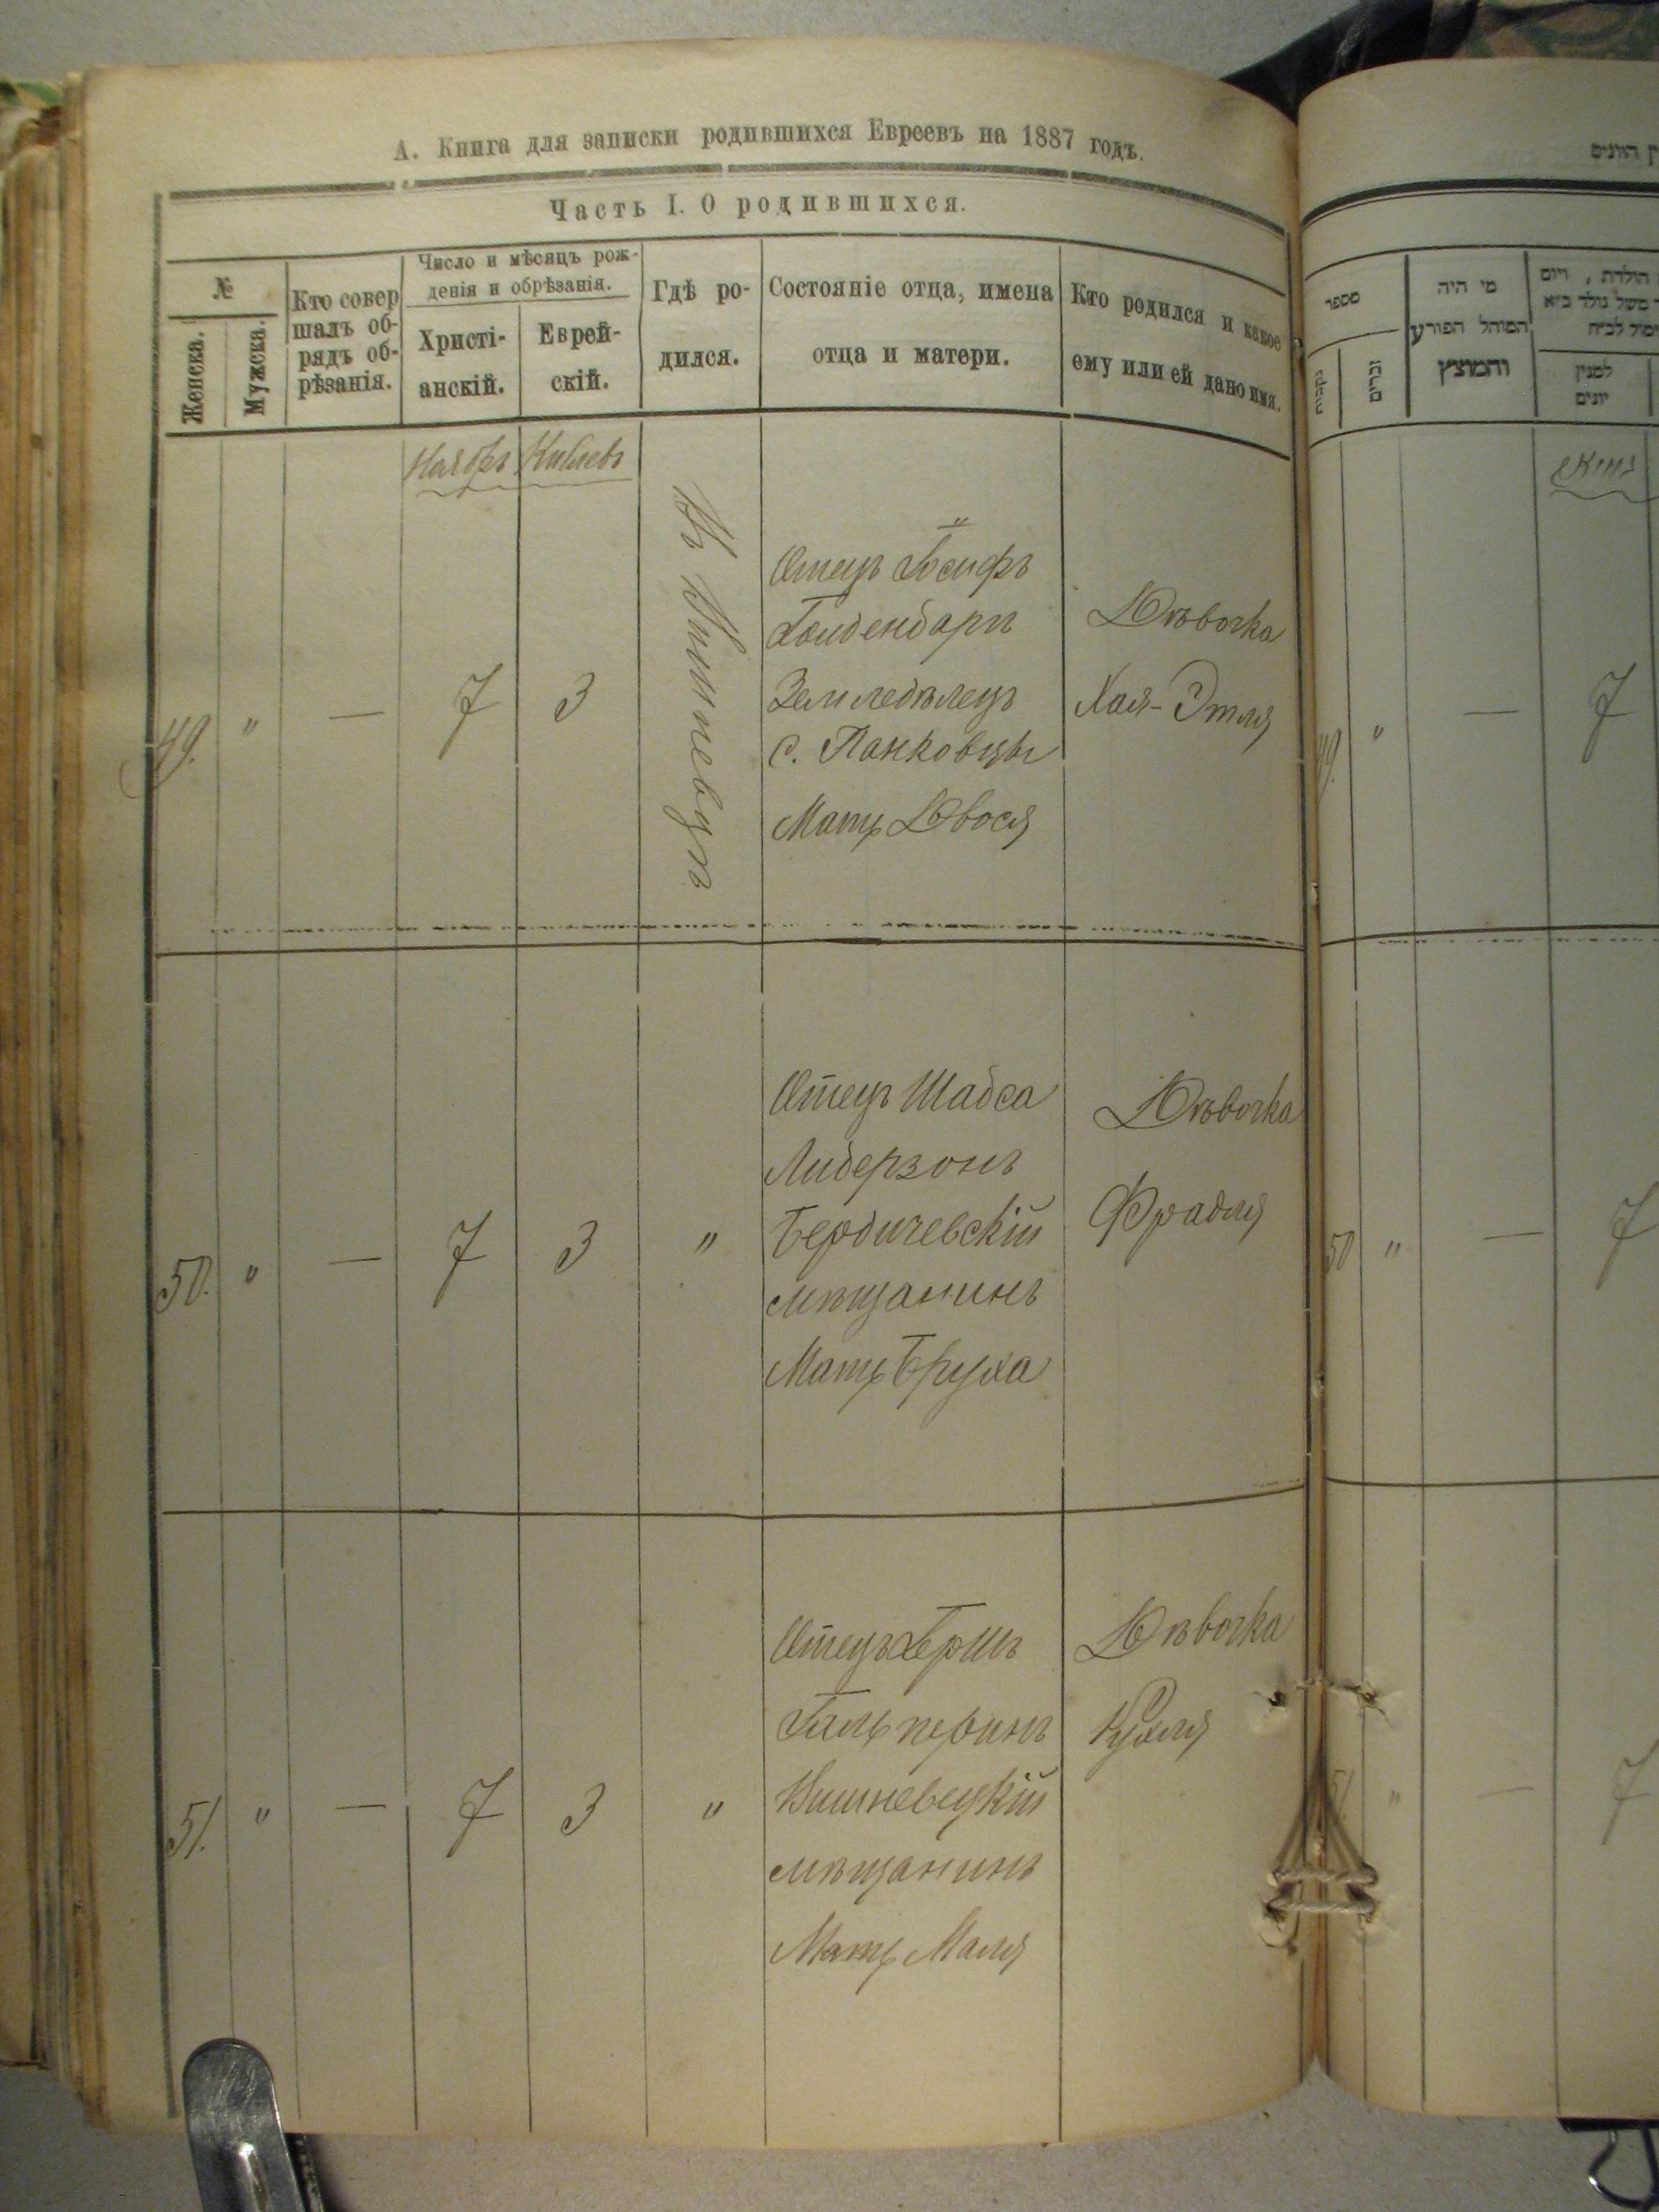 А. Книга для записки родившихся Евреевъ на 1887 годъ.
Часть I. О родившихся.
№
Женска.
Мужска.
Кто совер
шалъ об-
рядъ об-
рѣзанія.
Число и мѣсяцъ рож-
денія и обрѣзанія.
Христі-
анскій.
Еврей-
скій.
Гдѣ ро-
дился.
Состояніе отца, имена
отца и матери.
Кто родился и какое
ему или ей дано имя.
Ноябрь Кислевъ
49. " — 7 3
Въ Вишневцѣ
Отецъ Іосифъ
Гольденбаргъ
Земледѣлецъ
с. Панковцы
Мать Двося
Дѣвочка
Хая-Этля
50. " — 7 3 "
Отецъ Шабса
Либерзонъ
Бердичевскій
мѣщанинъ
Мать Бруха
Дѣвочка
Фрадля
51. " — 7 3 "
Отецъ Гершъ
Гальперинъ
Вишневецкій
мѣщанинъ
Мать Маля
Дѣвочка
Рухля
מספר
נקבות
זכרים
מי היה
המוהל הפורע
והמוצץ
הולדת , ויום
למנין
יונים
49. " — 7
50 " — 7
51. " — 7